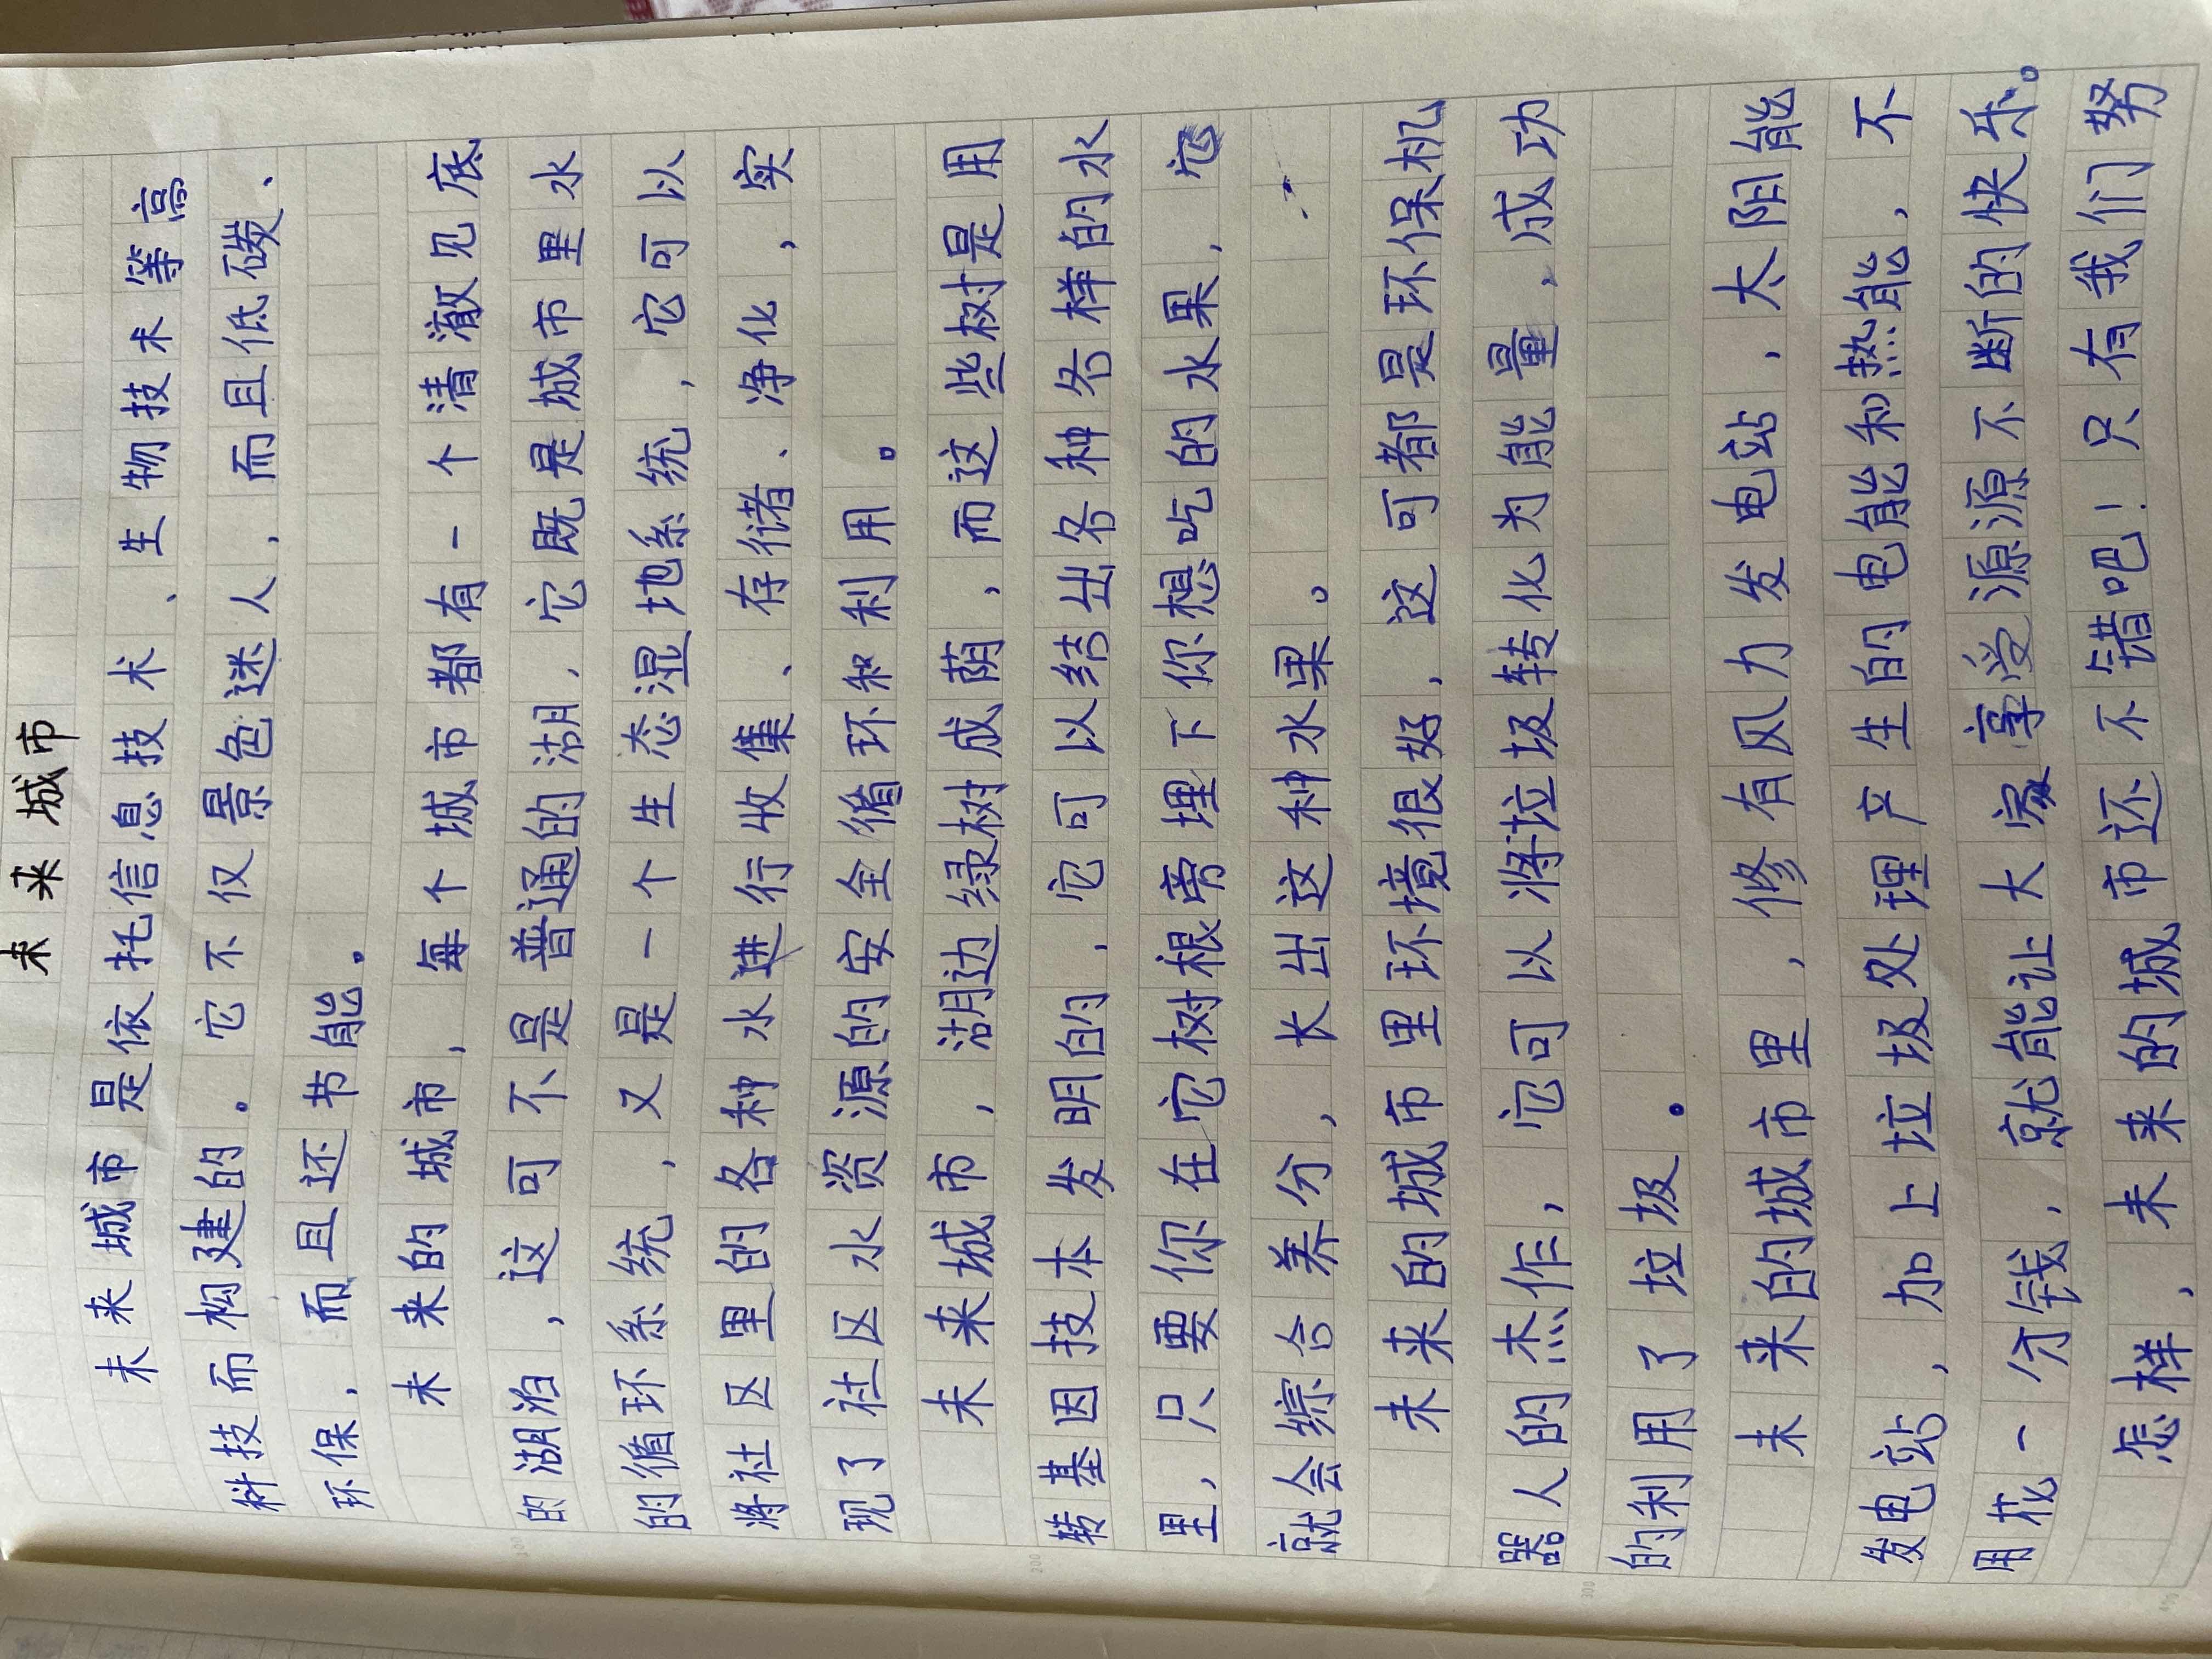 未来城市
未来城市是依托信息技术、生物技术等高
科技而构建的。它不仅景色迷人，而且低碳、
环保，而且还节能。
未来的城市，每个城市都有一个清澈见底
的湖泊，这可不是普通的湖，它既是城市里水
的循环系统，又是一个生态湿地系统，它可以
将社区里的各种水进行收集、存储、净化，实
现了社区水资源的安全循环和利用。
未来城市，湖边绿树成荫，而这些树是用
转基因技本发明的，它可以结出各种各样的水
里，只要你在它树根旁埋下你想吃的水果，它
就会综合养分，长出这种水果。
未来的城市里环境很好，这可都是环保机
器人的杰作，它可以将垃圾转化为能量，成功
的利用了垃圾。
未来的城市里，修有风力发电站，太阳能
发电站，加上垃圾处理产生的电能和热能，不
用花一分钱，就能让大家享受源源不断的快乐。
怎样，未来的城市还不错吧！只有我们努
100
200
300
400